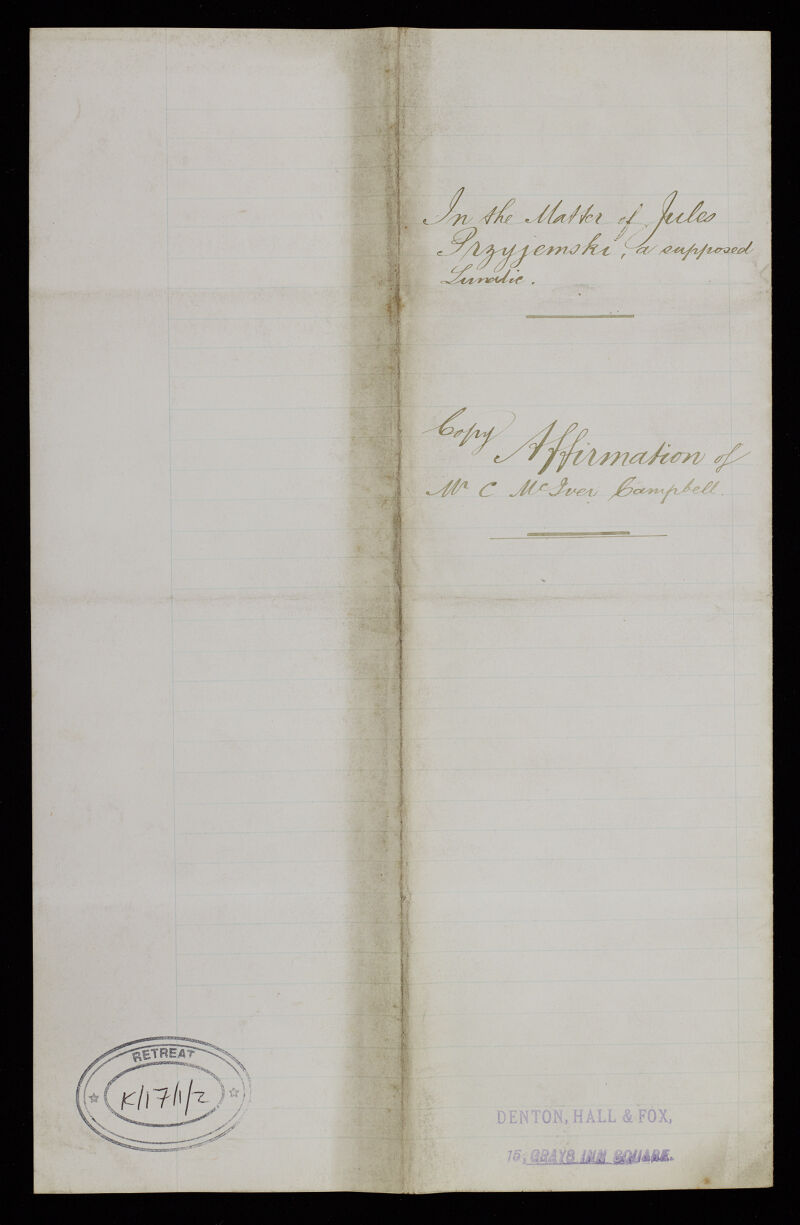 In the Matter of Jules
Przyjemski, a supposed
Lunatic.
Copy Affirmation of
Mr C McIver Campbell.
RETREAT
K/17/1/2
DENTON, HALL & FOX,
15, GRAYS INN SQUARE.